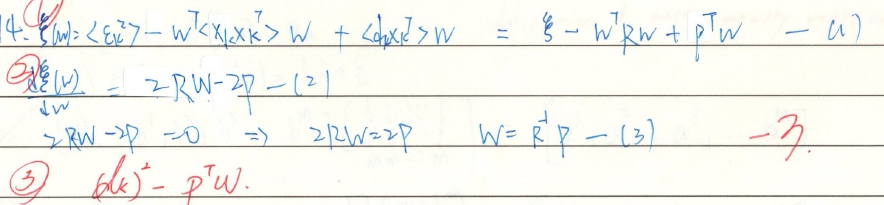 ① 14. ξ(w) = <εk²> - Wᵀ<XkXkᵀ>W + <dkXkᵀ>W = ξ - WᵀRW + PᵀW — (1)
② dξ(W)/dW = 2RW - 2P — (2)
2RW - 2P = 0 ⇒ 2RW = 2P W = R⁻¹P — (3) -3.
③ d(k)² - PᵀW.